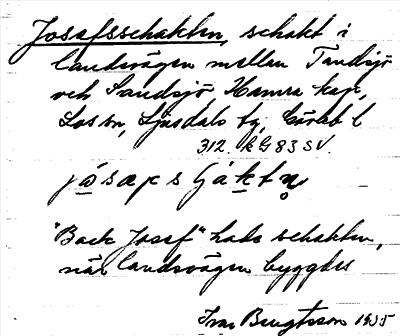 Josefsschakten, schakt i
landsvägen mellan Tandsjö
och Sandsjö Hamra kap,
Los sn, Ljusdals tg, Gävleb l
312. kG 83 SV.
"Back Josef" hade schakten,
när landsvägen byggdes
Ivar Bengtsson 1935